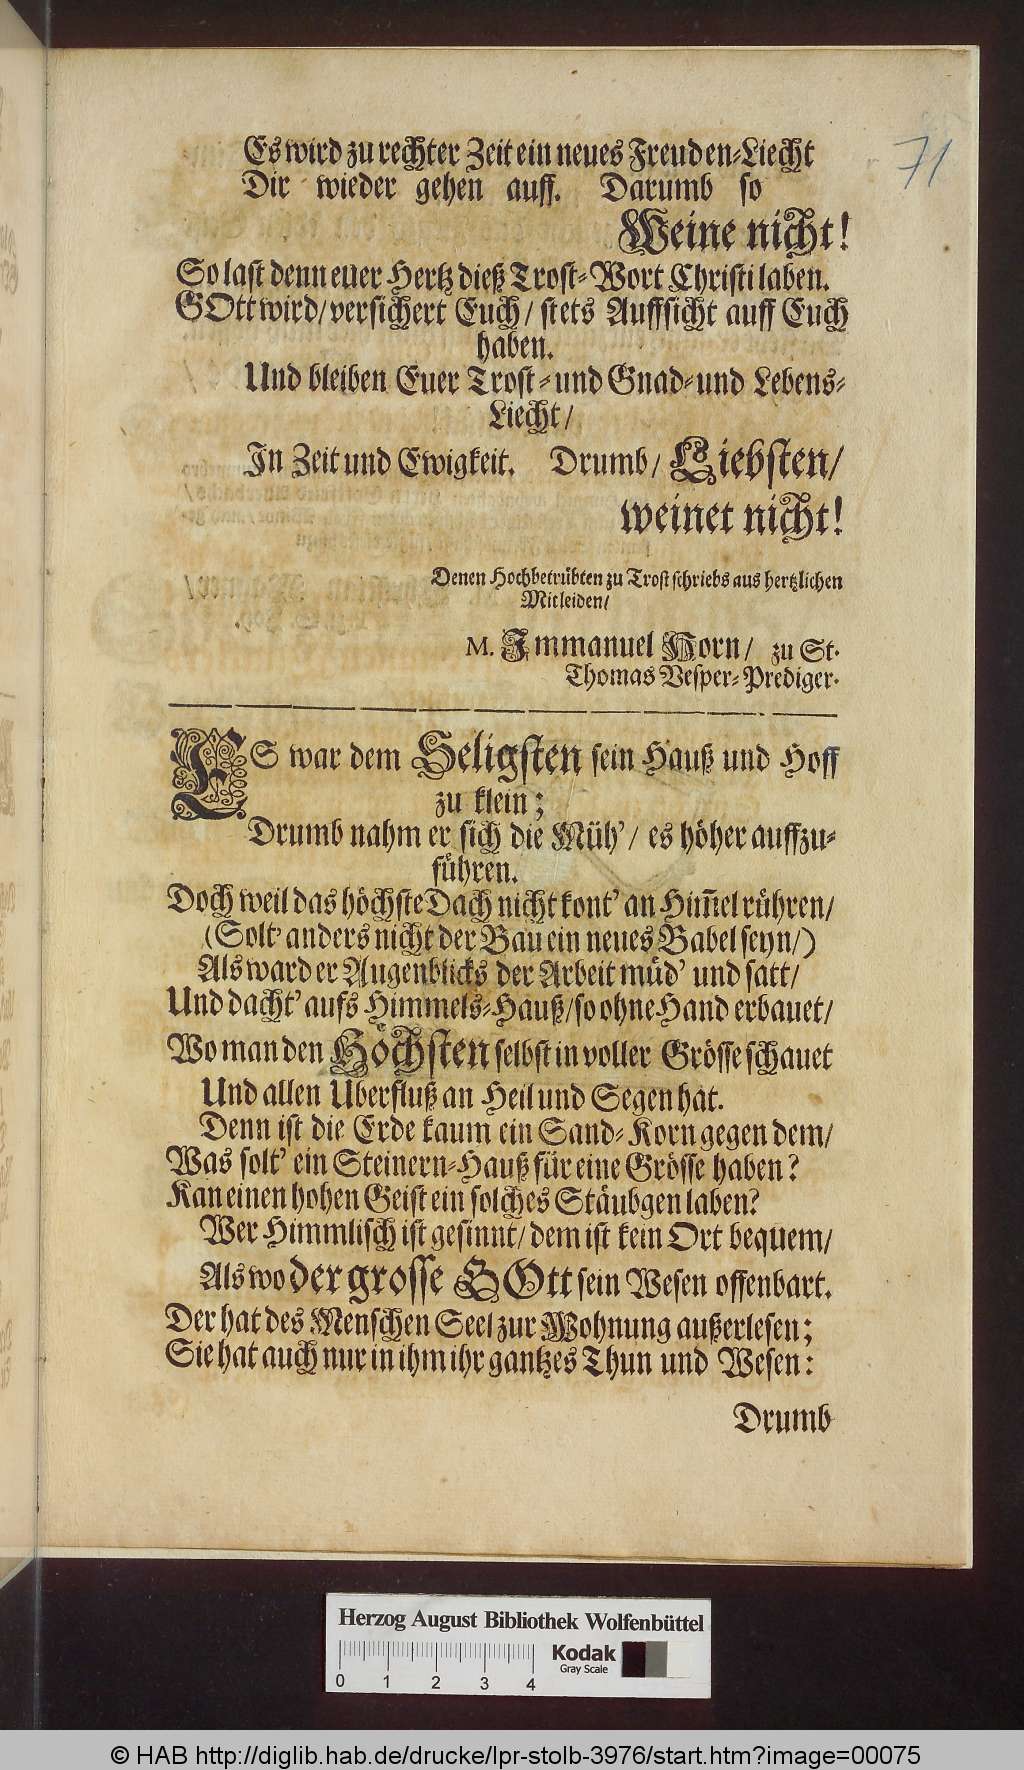 71
Es wird zu rechter Zeit ein neues Freuden-Liecht
Dir wieder gehen auff. Darumb so
Weine nicht!
So last denn euer Hertz dieß Trost-Wort Christi laben.
GOtt wird/ versichert Euch/ stets Auffsicht auff Euch
haben.
Und bleiben Euer Trost- und Gnad- und Lebens-
Liecht/
In Zeit und Ewigkeit. Drumb/ Liebsten/
weinet nicht!
Denen Hochbetrübten zu Trost schriebs aus hertzlichen
Mitleiden/
M. Immanuel Horn/ zu St.
Thomas Vesper-Prediger.
ES war dem Seligsten sein Hauß und Hoff
zu klein;
Drumb nahm er sich die Müh’/ es höher auffzu-
führen.
Doch weil das höchste Dach nicht kont’ an Him̄el rühren/
(Solt’ anders nicht der Bau ein neues Babel seyn/)
Als ward er Augenblicks der Arbeit müd’ und satt/
Und dacht’ aufs Himmels-Hauß/ so ohne Hand erbauet/
Wo man den Höchsten selbst in voller Grösse schauet
Und allen Uberfluß an Heil und Segen hat.
Denn ist die Erde kaum ein Sand-Korn gegen dem/
Was solt’ ein Steinern-Hauß für eine Grösse haben?
Kan einen hohen Geist ein solches Stäubgen laben?
Wer Himmlisch ist gesinnt/ dem ist kein Ort bequem/
Als wo der grosse GOtt sein Wesen offenbart.
Der hat des Menschen Seel zur Wohnung außerlesen;
Sie hat auch nur in ihm ihr gantzes Thun und Wesen:
Drumb
Herzog August Bibliothek Wolfenbüttel
0 1 2 3 4
Kodak
Gray Scale
© HAB http://diglib.hab.de/drucke/lpr-stolb-3976/start.htm?image=00075